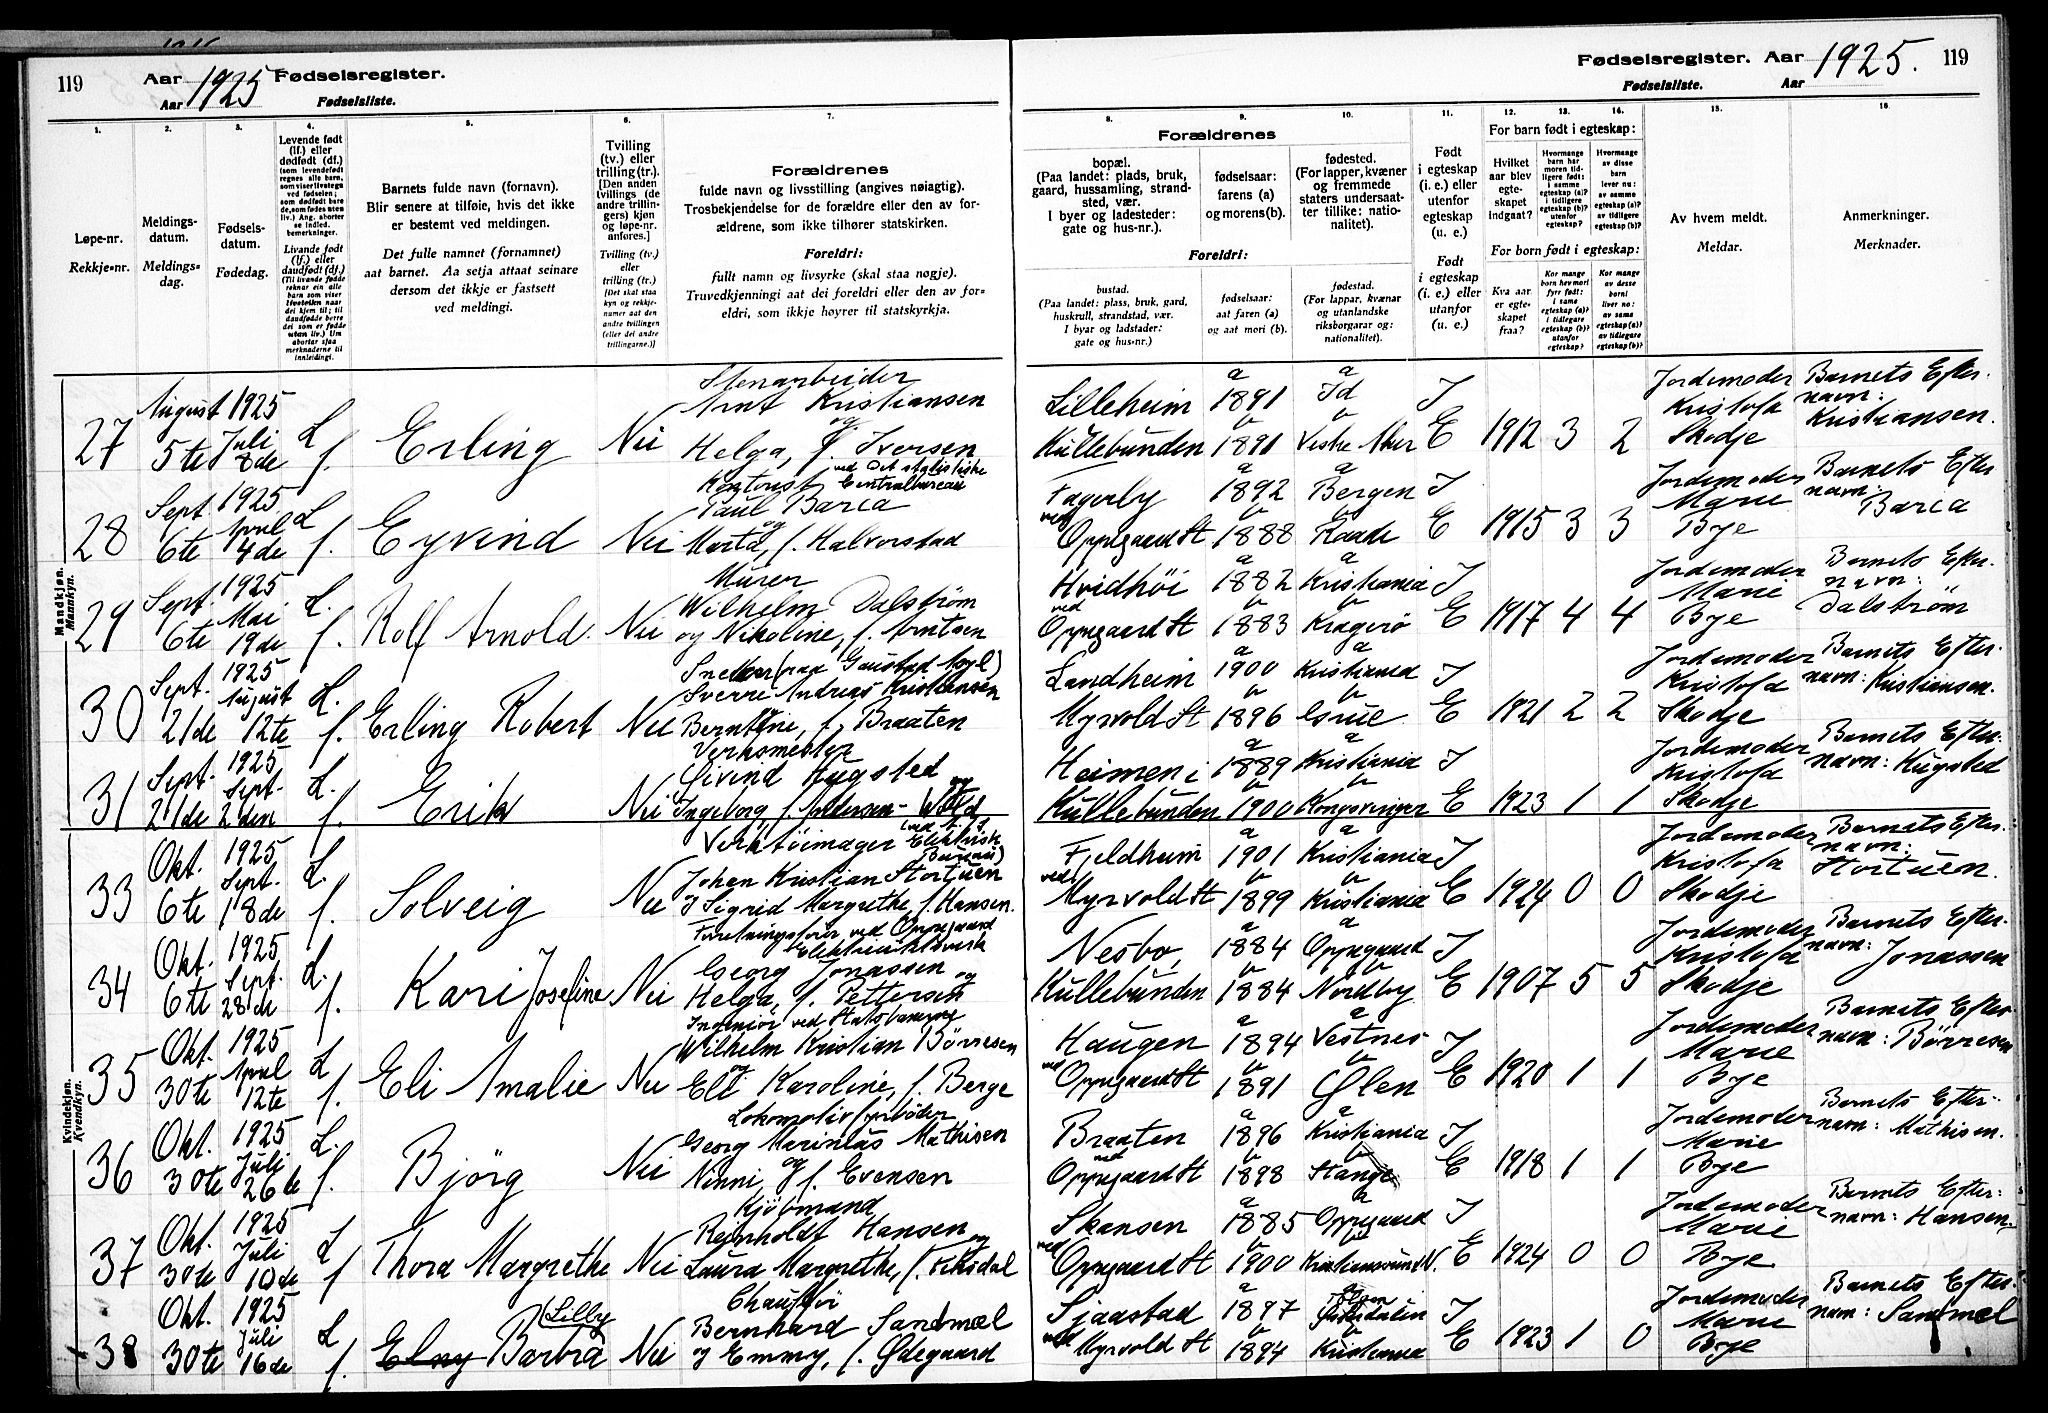 119 Aar 1925 Fødselsregister.
Aar Fødselsliste.
Fødselsregister. Aar 1925. 119
Fødselsliste. Aar
1. 2. 3. 4. 5. 6. 7.
Løpe-nr.
Rekkje-nr.
Meldings-
datum.
Meldings-
dag.
Fødsels-
datum.
Fødedag.
Levende født
(lf.) eller
dødfødt (df.)
Livande født
(lf.) eller
daudfødt (df.)
Barnets fulde navn (fornavn).
Blir senere at tilføie, hvis det ikke
er bestemt ved meldingen.
Det fulle namnet (fornamnet)
aat barnet. Aa setja attaat seinare
dersom det ikkje er fastsett
ved meldingi.
Tvilling
(tv.) eller
trilling (tr.).
[Den anden
tvillings (de
andre trillin-
gers) kjøn
og løpe-nr.
anføres.]
Tvilling (tv.)
eller
trilling (tr.)
Forældrenes
fulde navn og livsstilling (angives nøiagtig).
Trosbekjendelse for de forældre eller den av for-
ældrene, som ikke tilhører statskirken.
Foreldri:
fullt namn og livsyrke (skal staa nøgje).
Truvedkjenningi aat dei foreldri eller den av for-
eldri, som ikkje høyrer til statskyrkja.
8. 9. 10. 11. 12. 13. 14. 15. 16.
Forældrenes
bopæl.
(Paa landet: plads, bruk,
gaard, hussamling, strand-
sted, vær.
I byer og ladesteder:
gate og hus-nr.).
fødselsaar:
farens (a)
og morens (b).
fødested.
(For lapper, kvæner
og fremmede
staters undersaat-
ter tillike: natio-
nalitet).
Foreldri:
bustad.
(Paa landet: plass, bruk, gard,
huskrull, strandstad, vær.
I byar og ladstader:
gate og hus-nr.)
fødselsaar:
aat faren (a)
og aat mori (b).
fødestad.
(For lappar, kvænar
og utanlandske
riksborgarar og:
nationalitet).
Født
i egteskap
(i. e.) eller
utenfor
egteskap
(u. e.)
Født
i egteskap
(i. e.) eller
utanfor
(u. e.)
For barn født i egteskap:
Hvilket
aar blev
egte-
skapet
indgaat?
For born født i egteskap:
Kva aar
er egte-
skapet
fraa?
Av hvem meldt.
Meldar.
Anmerkninger.
Merknader.
Mandkjøn.
Mannkyn.
27 August 5te 1925 Juli 8de L f. Erling Nei Stenarbeider Arnt Kristiansen og Helga, f. Iversen Lilleheim Kullebunden a 1891 b 1891 a Id b Vestre Aker I E 1912 3 2 Jordemoder Kristofa Skodje Barnets Efternavn: Kristiansen.
28 Sept 6te 1925 April 4de L f. Eyvind Nei Kontorist ved Det statistiske Centralbureau Paul Barca og Marta, f. Halvorstad Fagerby ved Oppegaard St a 1892 b 1888 a Bergen b Raade I E 1915 3 3 Jordemoder Marie Bye Barnets Efternavn: Barca
29 Sept. 6te 1925 Mai 19de L. f. Rolf Arnold. Nei Murer Wilhelm Dalstrøm og Nikoline, f. Arntsen Hvidhøi ved Oppegaard St a 1882 b 1883 a Kristiania b Kragerø I E 1917 4 4 Jordemoder Marie Bye Barnets Efternavn: Dalstrøm
30 Sept. 21de 1925 August 12te L. f. Erling Robert Nei Snekker (paa Gaustad Asyl) Sverre Andreas Kristiansen Berntine, f. Braaten Landheim Myrvold St a 1900 b 1896 a Kristiania b Grue I E 1921 2 2 Jordemoder Kristofa Skodje Barnets Efternavn: Kristiansen.
31 Sept. 21de 1925 Sept. 2den L. f. Erik Nei Verksmester Øivind Hugsted og Ingeborg f. Andersen-Wold Heimen i Kullebunden a 1889 b 1900 a Kristiania b Kongsvinger I E 1923 1 1 Jordemoder Kristofa Skodje Barnets Efternavn: Hugsted
Kvindekjøn.
Kvendkyn.
33 Okt. 6te 1925 Sept. 18de L. f. Solveig Nei Verktøimager Elektrisk Bureau) Johan Kristian Stortuen Sigrid Margrethe, f. Hansen. Fjeldheim ved Myrvold St a 1901 b 1899 a Kristiania b Kristiania I E 1924 0 0 Jordemoder Kristofa Skodje Barnets Efternavn: Stortuen.
34 Okt. 6te 1925 Sept. 28de L. f. Kari Josefine Nei Forretningsfører ved Oppegaard Elektricitetsverk Georg Jonassen og Helga, f. Pettersen Nesbo, Kullebunden a 1884 b 1884 a Oppegaard b Nordby I E 1907 5 5 Jordemoder Kristofa Skodje Barnets Efternavn: Jonassen
35 Okt. 30te 1925 April 12te L f. Eli Amalie Nei Ingeniør ved Statsbanerne Wilhelm Kristian Börresen og Eli Karoline, f. Berge Haugen ved Oppegaard St a 1894 b 1891 a Vestnes b Ølen I E 1920 1 1 Jordemoder Marie Bye Barnets Efternavn: Börresen
36 Okt. 30te 1925 Juli 26de L. f. Bjørg Nei Lokomotivfyrbøder Georg Marinius Mathisen og Ninni, f. Evensen Braaten ved Oppegaard St a 1896 b 1898 a Kristiania b Stange I E 1918 1 1 Jordemoder Marie Bye Barnets Efternavn: Mathisen.
37 Okt. 30te 1925 Juli 10de L f Thora Margrethe Nei Kjøbmand Reinholdt Hansen og Laura Margrethe, f. Fiksdal Skansen ved Oppegaard St a 1885 b 1900 a Oppegaard b Kristiansund N. I E 1924 0 0 Jordemoder Marie Bye Barnets Efternavn: Hansen.
38 Okt. 30te 1925 Juli 16de L f. Elny (Lilly) Barbra Nei Chauffør Bernhard Sandmæl og Emmy, f. Ødegaard Sjaastad ved Myrvold St a 1897 b 1894 b Kristiania I E 1923 1 0 Jordemoder Marie Bye Barnets Efternavn: Sandmæl